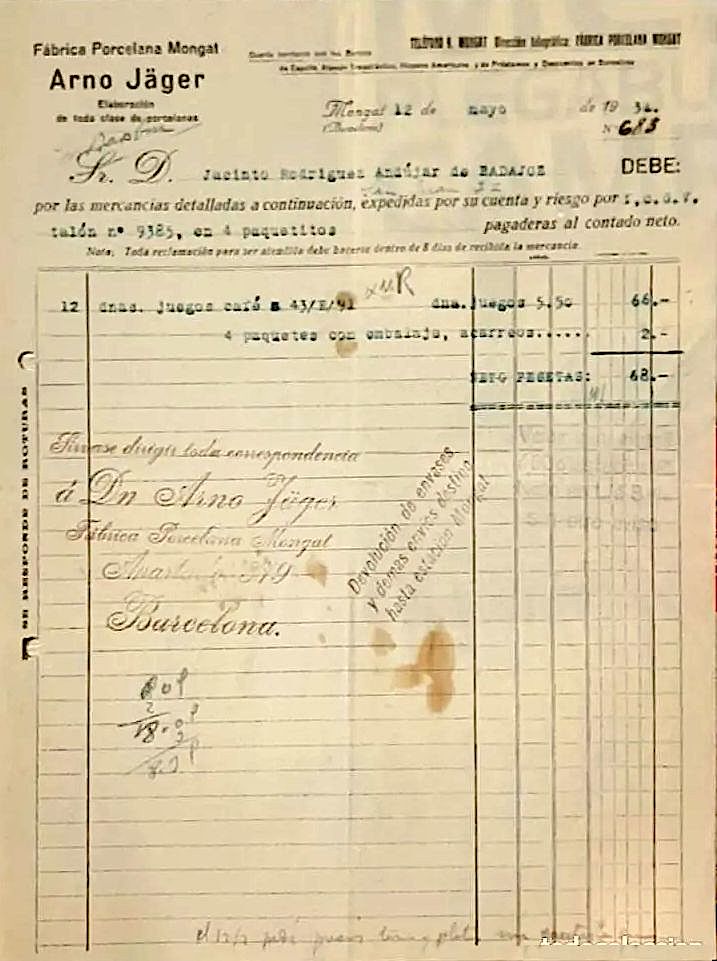 Fábrica Porcelana Mongat
Arno Jäger
Elaboración
de toda clase de porcelanas
Cuenta corriente con los Bancos
de España, Alemán Trasatlántico, Hispano Americano y de Préstamos y Descuentos en Barcelona
TELÉFONO 8. MONGAT Dirección telegráfica: FÁBRICA PORCELANA MONGAT
Mongat 12 de mayo de 1934.
(Barcelona)
N.º 683
Sr. D. Jacinto Rodriguez Andújar de BADAJOZ DEBE:
por las mercancias detalladas a continuación, expedidas por su cuenta y riesgo por
talón nº 9385, en 4 paquetitos pagaderas al contado neto.
Nota: Toda reclamación para ser atendida debe hacerse dentro de 8 días de recibida la mercancía.
12 dnas. juegos café a 43/E/91 dna. juegos 5.50 66.-
4 paquetes con embalaje, acarreos...... 2.-
NETO PESETAS: 68.-
SE RESPONDE DE ROTURAS
Sírvase dirigir toda correspondencia
á Dn Arno Jäger
Fábrica Porcelana Mongat
Apartado 879
Barcelona.
Devolución de envases
y demás envios destino
hasta estación Mongat
todocoleccion